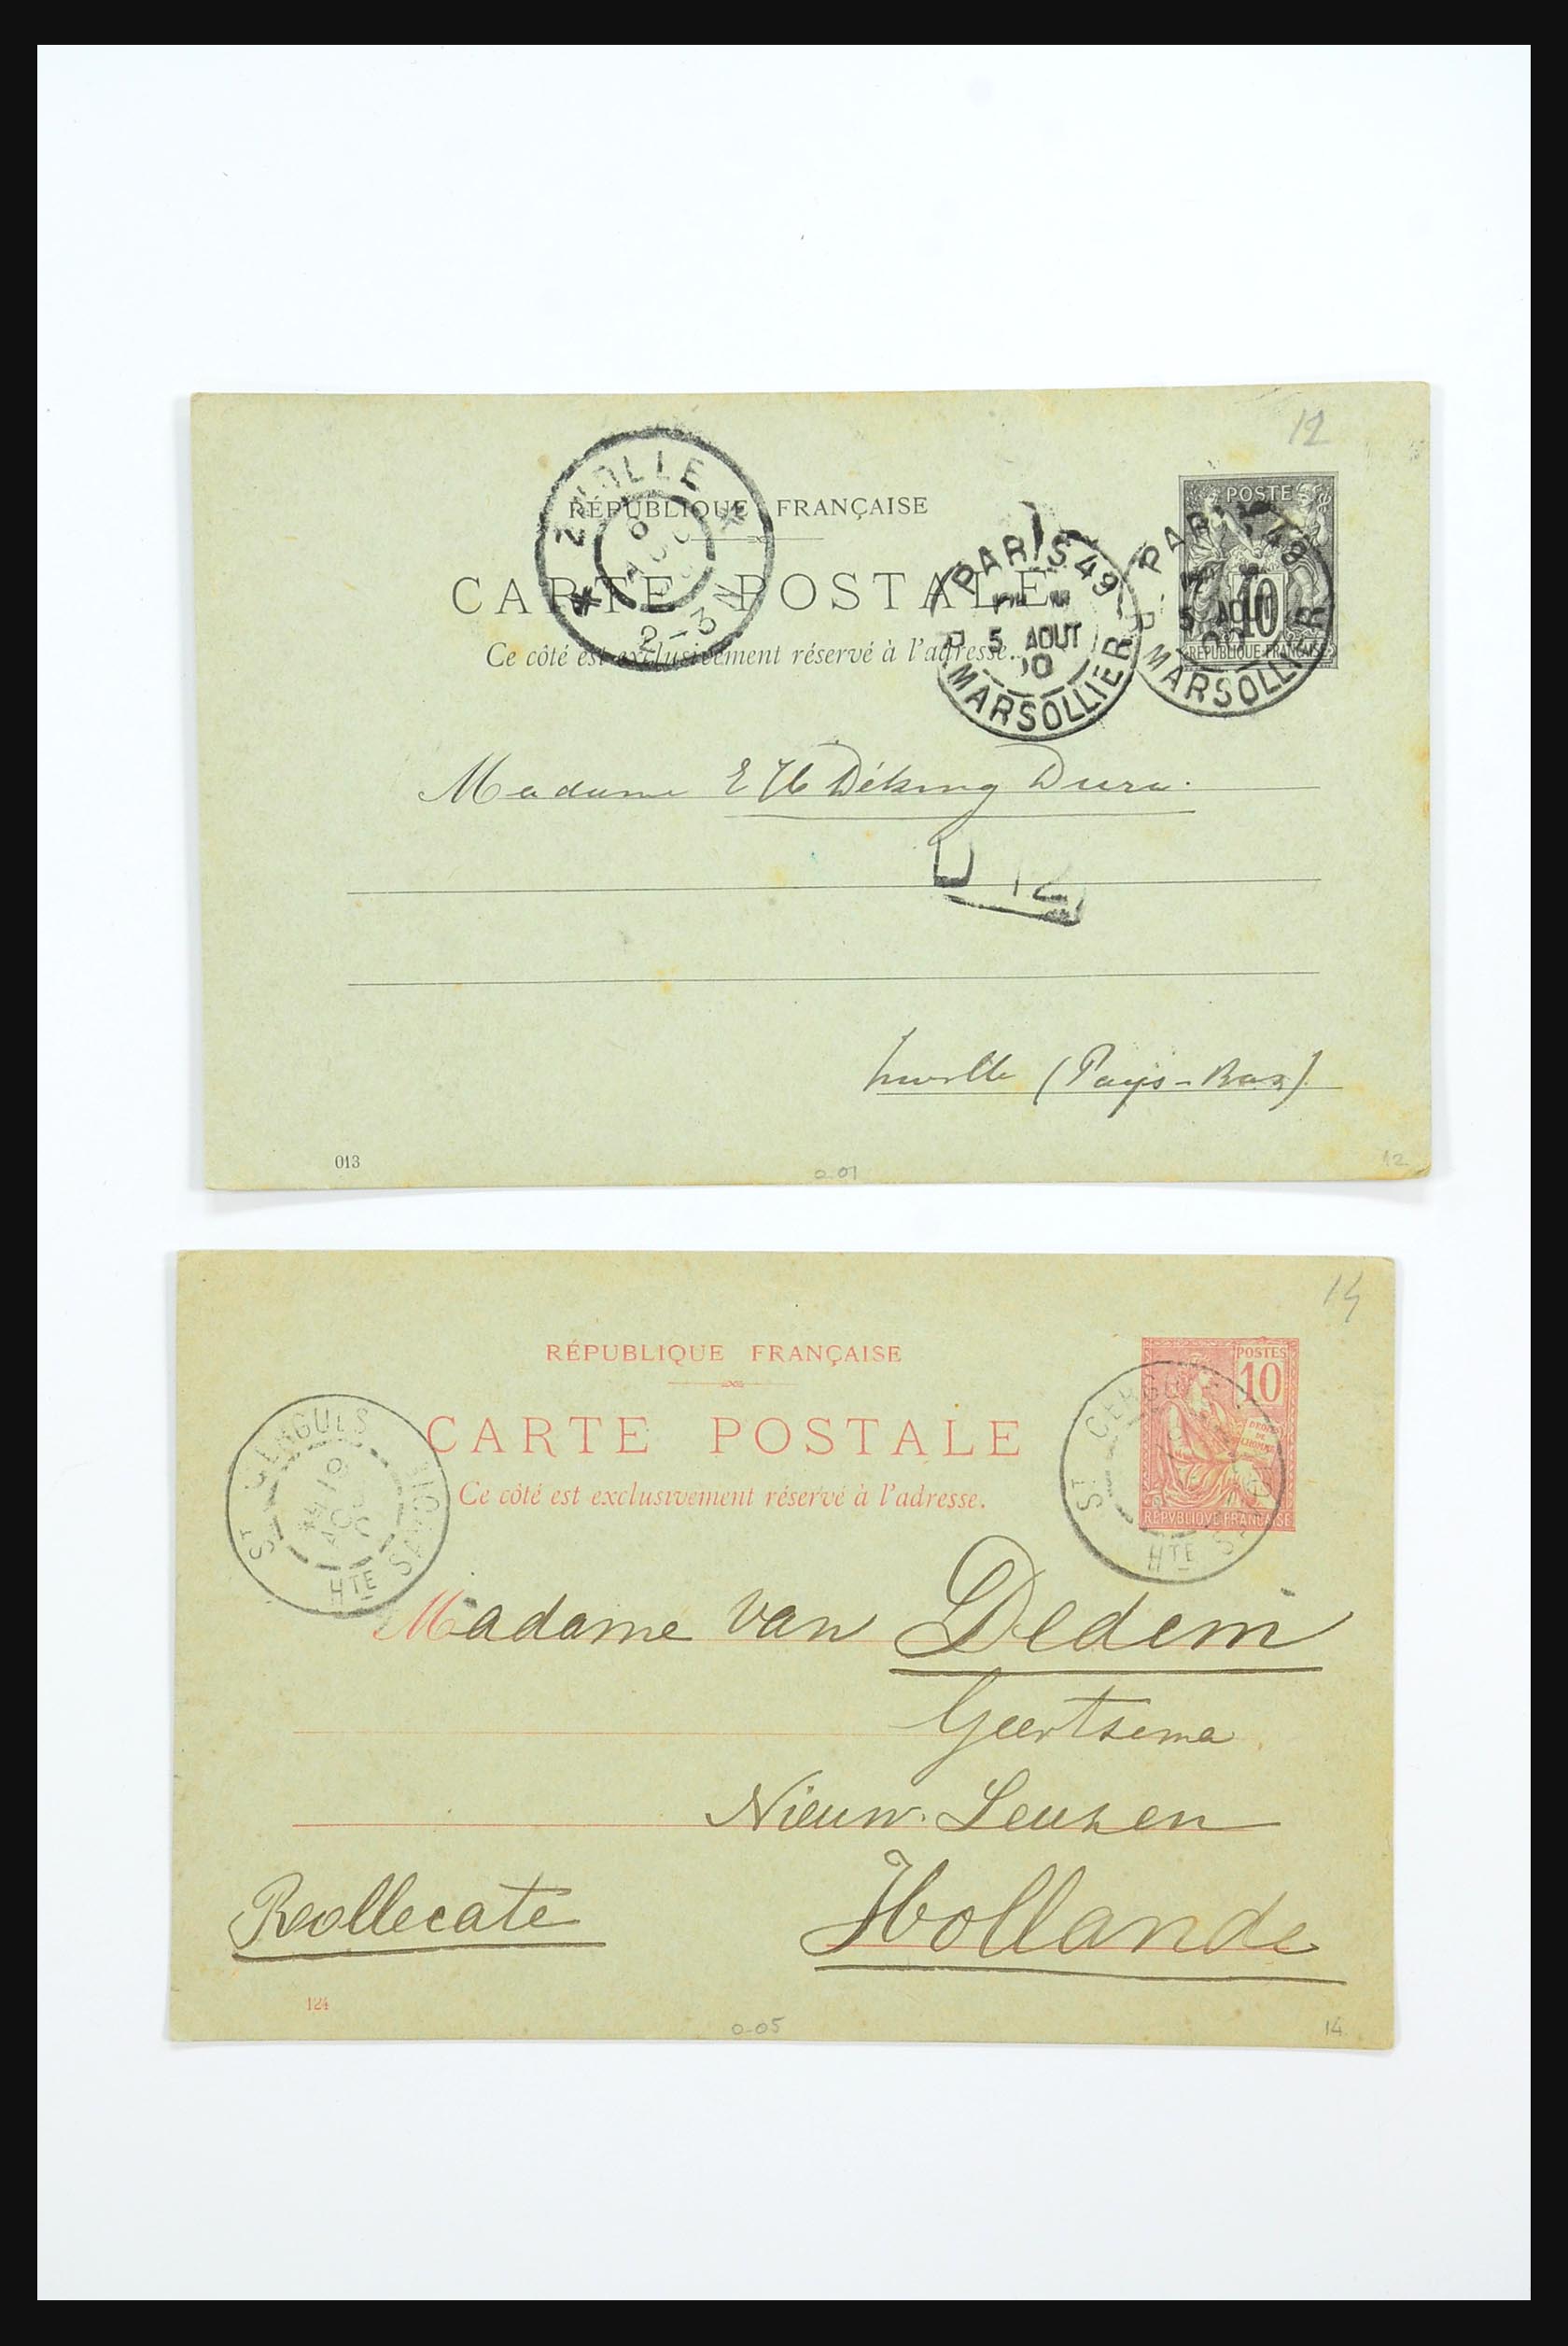 12
ZWOLLE
2-3N
RÉPUBLIQUE FRANÇAISE
CARTE POSTALE
Ce côté est exclusivement réservé à l'adresse.
PARIS 49
5 AOUT
00
R. MARSOLLIER
POSTE
10
REPUBLIQUE FRANÇAISE
Madame E H Déking Dura.
D 12
Zwolle (Pays-Bas)
013
0-01
12
14
RÉPUBLIQUE FRANÇAISE
CARTE POSTALE
Ce côté est exclusivement réservé à l'adresse.
ST CERGUES
HTE SAVOIE
POSTES
10
DROITS
DE
L'HOMME
REPVBLIQVE FRANÇAISE
Madame van Dedem
Geertsema
Nieuw-Leuzen
Rollecate Hollande
124
0-05
14